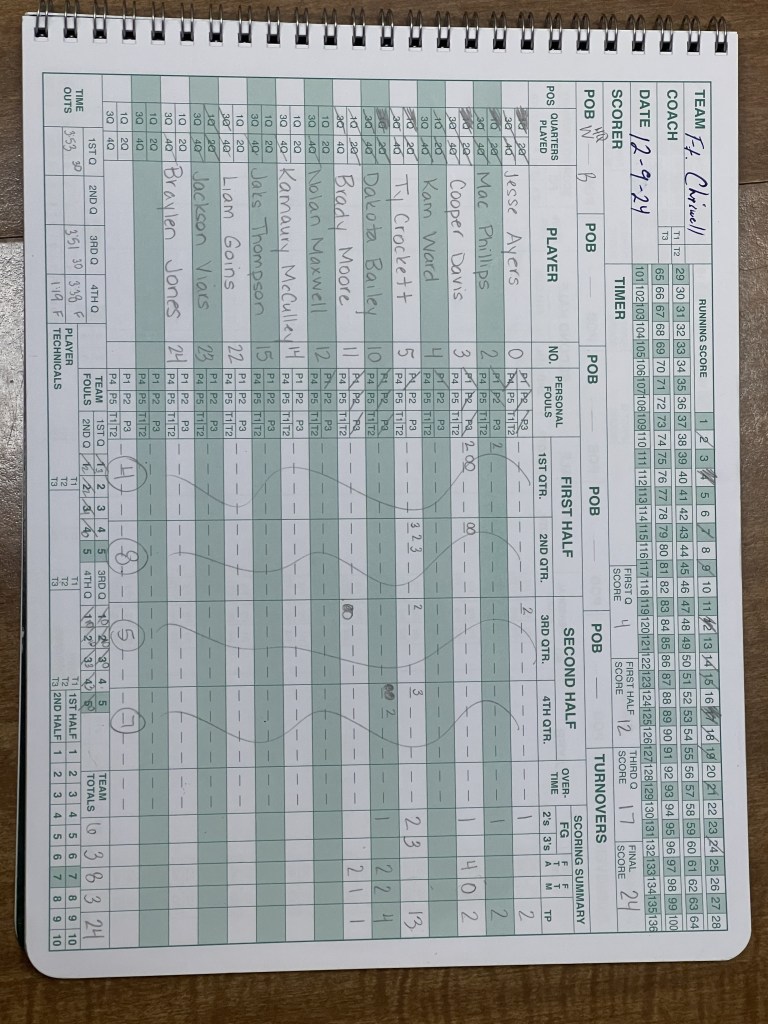 TEAM Ft. Chiswell
T1 T2
T3
RUNNING SCORE 1 2 3 4 5 6 7 8 9 10 11 12 13 14 15 16 17 18 19 20 21 22 23 24 25 26 27 28
COACH
29 30 31 32 33 34 35 36 37 38 39 40 41 42 43 44 45 46 47 48 49 50 51 52 53 54 55 56 57 58 59 60 61 62 63 64
65 66 67 68 69 70 71 72 73 74 75 76 77 78 79 80 81 82 83 84 85 86 87 88 89 90 91 92 93 94 95 96 97 98 99 100
DATE 12-9-24
101 102 103 104 105 106 107 108 109 110 111 112 113 114 115 116 117 118 119 120 121 122 123 124 125 126 127 128 129 130 131 132 133 134 135 136
SCORER TIMER FIRST Q SCORE 4 FIRST HALF SCORE 12 THIRD Q SCORE 17 FINAL SCORE 24
POB W POB B POB POB POB TURNOVERS
POS QUARTERS PLAYED PLAYER NO. PERSONAL FOULS FIRST HALF 1ST QTR. 2ND QTR. SECOND HALF 3RD QTR. 4TH QTR. OVER-TIME SCORING SUMMARY FG 2's 3's FTA FTM TP
1Q 2Q 3Q 4Q Jesse Ayers 0 P1 P2 P3 P4 P5 T1 T2 2 1 2
1Q 2Q 3Q 4Q Mac Phillips 2 P1 P2 P3 P4 P5 T1 T2 2 1 2
1Q 2Q 3Q 4Q Cooper Davis 3 P1 P2 P3 P4 P5 T1 T2 2 0 0 0 0 1 4 0 2
1Q 2Q 3Q 4Q Kam Ward 4 P1 P2 P3 P4 P5 T1 T2
1Q 2Q 3Q 4Q Ty Crockett 5 P1 P2 P3 P4 P5 T1 T2 3 2 3 2 3 2 3 13
1Q 2Q 3Q 4Q Dakota Bailey 10 P1 P2 P3 P4 P5 T1 T2 2 1 2 2 4
1Q 2Q 3Q 4Q Brady Moore 11 P1 P2 P3 P4 P5 T1 T2 2 1 1
1Q 2Q 3Q 4Q Nolan Maxwell 12 P1 P2 P3 P4 P5 T1 T2
1Q 2Q 3Q 4Q Kamaury McCulley 14 P1 P2 P3 P4 P5 T1 T2
1Q 2Q 3Q 4Q Jais Thompson 15 P1 P2 P3 P4 P5 T1 T2
1Q 2Q 3Q 4Q Liam Goins 22 P1 P2 P3 P4 P5 T1 T2
1Q 2Q 3Q 4Q Jackson Viars 23 P1 P2 P3 P4 P5 T1 T2
1Q 2Q 3Q 4Q Braylen Jones 24 P1 P2 P3 P4 P5 T1 T2
1Q 2Q 3Q 4Q P1 P2 P3 P4 P5 T1 T2
1Q 2Q 3Q 4Q P1 P2 P3 P4 P5 T1 T2 4 8 5 7
TIME OUTS 1ST Q 2ND Q 3RD Q 4TH Q TEAM FOULS 1ST Q 1 2 3 4 5 3RD Q 1 2 3 4 5 TEAM TOTALS 6 3 8 3 24
2ND Q 1 2 3 4 5 4TH Q 1 2 3 4 5
3:53 30 3:51 30 3:38 F
1:19 F
PLAYER TECHNICALS T1 T2 T3 T1 T2 T3 T1 T2 T3 1ST HALF 1 2 3 4 5 6 7 8 9 10
2ND HALF 1 2 3 4 5 6 7 8 9 10